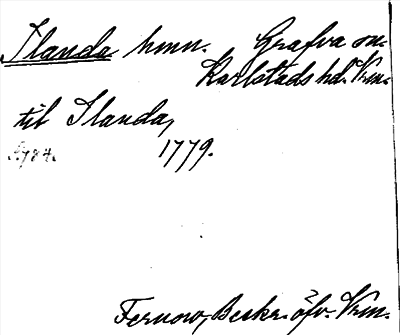 Ilanda hmn. Grafva sn.
Karlstads hd. Vrm.
till Ilanda,
1779.
Fernow, Beskr. öfv. Vrm.